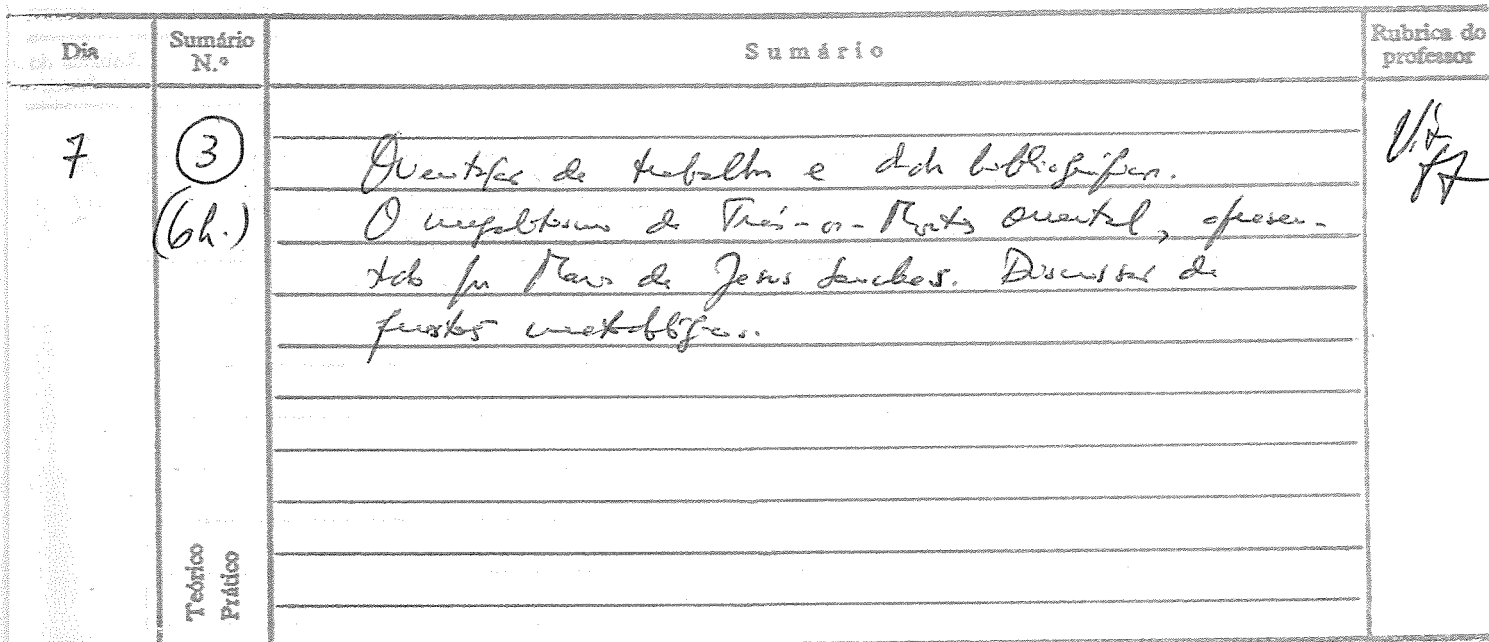 Dia
Sumário N.º
Sumário
Rubrica do professor
7
3
(6h.)
Orientação de trabalhos e dados bibliográficos.
O megalitismo de Trás-os-Montes oriental, apresen-
tado por Maria de Jesus Sanches. Discussão de
questões metodológicas.
Teórico
Prático